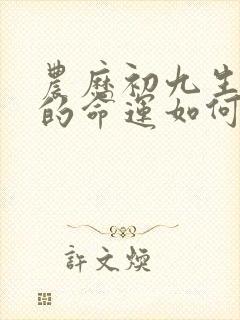 農歷初九生
的命運如何
許文煥